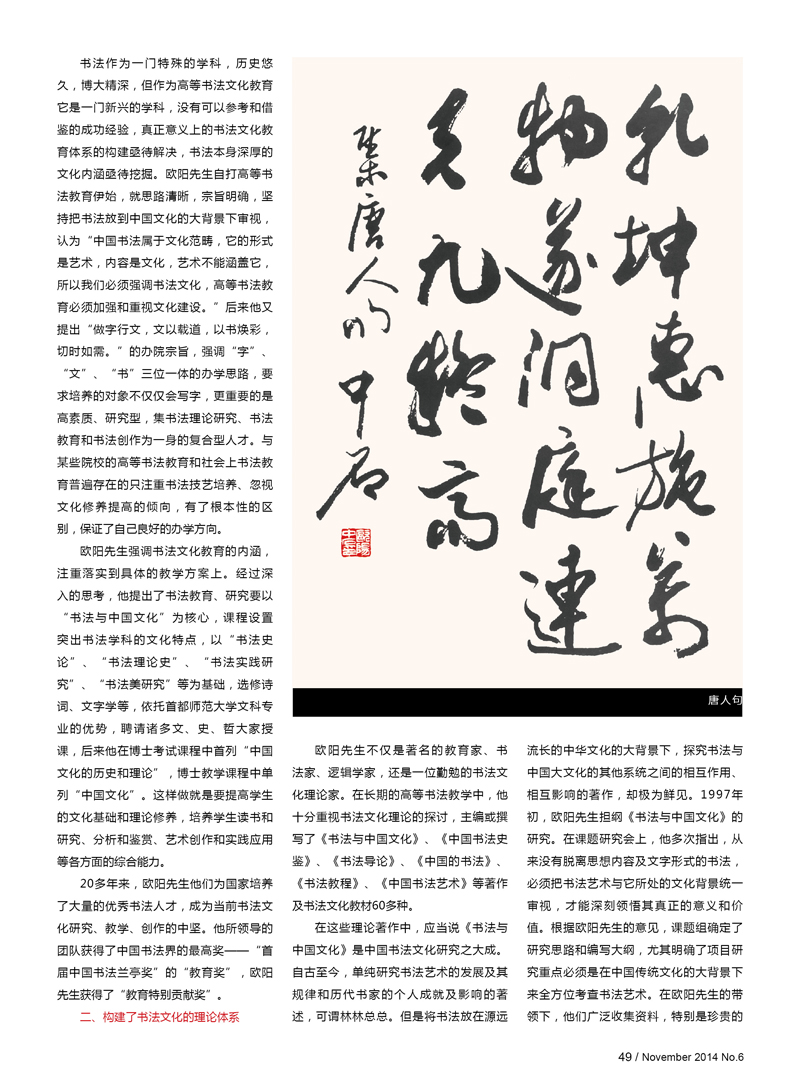 书法作为一门特殊的学科，历史悠
久，博大精深，但作为高等书法文化教育
它是一门新兴的学科，没有可以参考和借
鉴的成功经验，真正意义上的书法文化教
育体系的构建亟待解决，书法本身深厚的
文化内涵亟待挖掘。欧阳先生自打高等书
法教育伊始，就思路清晰，宗旨明确，坚
持把书法放到中国文化的大背景下审视，
认为“中国书法属于文化范畴，它的形式
是艺术，内容是文化，艺术不能涵盖它，
所以我们必须强调书法文化，高等书法教
育必须加强和重视文化建设。”后来他又
提出“做字行文，文以载道，以书焕彩，
切时如需。”的办院宗旨，强调“字”、
“文”、“书”三位一体的办学思路，要
求培养的对象不仅仅会写字，更重要的是
高素质、研究型，集书法理论研究、书法
教育和书法创作为一身的复合型人才。与
某些院校的高等书法教育和社会上书法教
育普遍存在的只注重书法技艺培养、忽视
文化修养提高的倾向，有了根本性的区
别，保证了自己良好的办学方向。
欧阳先生强调书法文化教育的内涵，
注重落实到具体的教学方案上。经过深
入的思考，他提出了书法教育、研究要以
“书法与中国文化”为核心，课程设置
突出书法学科的文化特点，以“书法史
论”、“书法理论史”、“书法实践研
究”、“书法美研究”等为基础，选修诗
词、文字学等，依托首都师范大学文科专
业的优势，聘请诸多文、史、哲大家授
课，后来他在博士考试课程中首列“中国
文化的历史和理论”，博士教学课程中单
列“中国文化”。这样做就是要提高学生
的文化基础和理论修养，培养学生读书和
研究、分析和鉴赏、艺术创作和实践应用
等各方面的综合能力。
20多年来，欧阳先生他们为国家培养
了大量的优秀书法人才，成为当前书法文
化研究、教学、创作的中坚。他所领导的
团队获得了中国书法界的最高奖——“首
届中国书法兰亭奖”的“教育奖”，欧阳
先生获得了“教育特别贡献奖”。
二、构建了书法文化的理论体系
乾坤惠施万
物遂洞庭连
天九疑高
集唐人句 中石
唐人句
欧阳先生不仅是著名的教育家、书
法家、逻辑学家，还是一位勤勉的书法文
化理论家。在长期的高等书法教学中，他
十分重视书法文化理论的探讨，主编或撰
写了《书法与中国文化》、《中国书法史
鉴》、《书法导论》、《中国的书法》、
《书法教程》、《中国书法艺术》等著作
及书法文化教材60多种。
在这些理论著作中，应当说《书法与
中国文化》是中国书法文化研究之大成。
自古至今，单纯研究书法艺术的发展及其
规律和历代书家的个人成就及影响的著
述，可谓林林总总。但是将书法放在源远
流长的中华文化的大背景下，探究书法与
中国大文化的其他系统之间的相互作用、
相互影响的著作，却极为鲜见。1997年
初，欧阳先生担纲《书法与中国文化》的
研究。在课题研究会上，他多次指出，从
来没有脱离思想内容及文字形式的书法，
必须把书法艺术与它所处的文化背景统一
审视，才能深刻领悟其真正的意义和价
值。根据欧阳先生的意见，课题组确定了
研究思路和编写大纲，尤其明确了项目研
究重点必须是在中国传统文化的大背景下
来全方位考查书法艺术。在欧阳先生的带
领下，他们广泛收集资料，特别是珍贵的
49 / November 2014 No.6